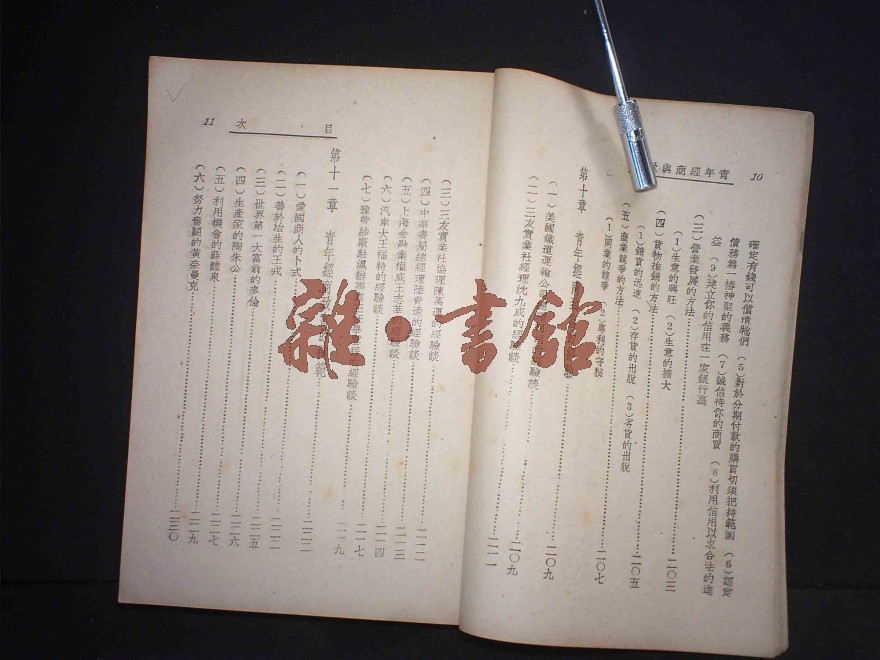 10
青年經商與
確定有錢可以償淸牠們 (5)對於分期付款的購買切須把持範圍 (6)認定
債務爲一椿神聖的義務 (7)誠信待你的商買 (8)利用信用以求合法的進
益 (9)建立你的信用在一家銀行裏
(三)營業發展的方法……二〇三
(1)生意的興旺 (2)生意的擴大
(四)貨物推銷的方法……二〇五
(1)銷貨的迅速 (2)存貨的出脫 (3)劣貨的出脫
(五)商業競爭的方法……二〇七
(1)同業的競爭 (2)專利的
第十章 靑年經商
(一)美國鐵道運輸公……二〇九
(二)三友實業社經理沈九成的經驗談……二〇九
二一一
目次
11
(三)三友實業社協理陳萬運的經驗談……二一二
(四)中華書局總經理陸費逵的經驗談……二一三
(五)上海金融業權威王志莘的經驗談……二一四
(六)汽車大王福特的經驗談……二一七
(七)豫豐紗廠駐滬辦事經驗談……二一九
第十一章 靑年經商
(一)愛國商人的卜式……二二一
(二)善於治生的王戎……二二二
(三)世界第一大富翁的麥倫……二二五
(四)生產家的陶朱公……二二六
(五)利用機會的薛體泉……二二七
(六)努力奮鬭的黃奈曼克……二二九
二三〇
雜·書館